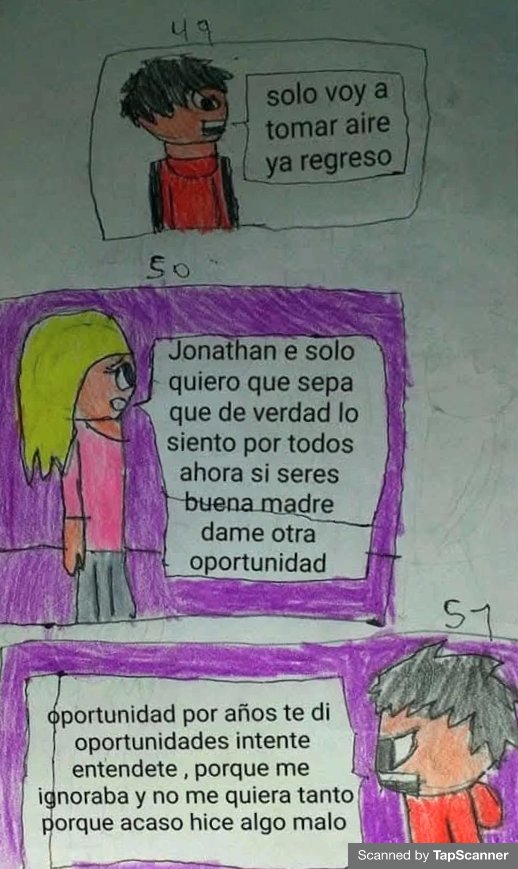 49
solo voy a
tomar aire
ya regreso
50
Jonathan e solo
quiero que sepa
que de verdad lo
siento por todos
ahora si seres
buena madre
dame otra
oportunidad
51
oportunidad por años te di
oportunidades intente
entendete , porque me
ignoraba y no me quiera tanto
porque acaso hice algo malo
Scanned by TapScanner